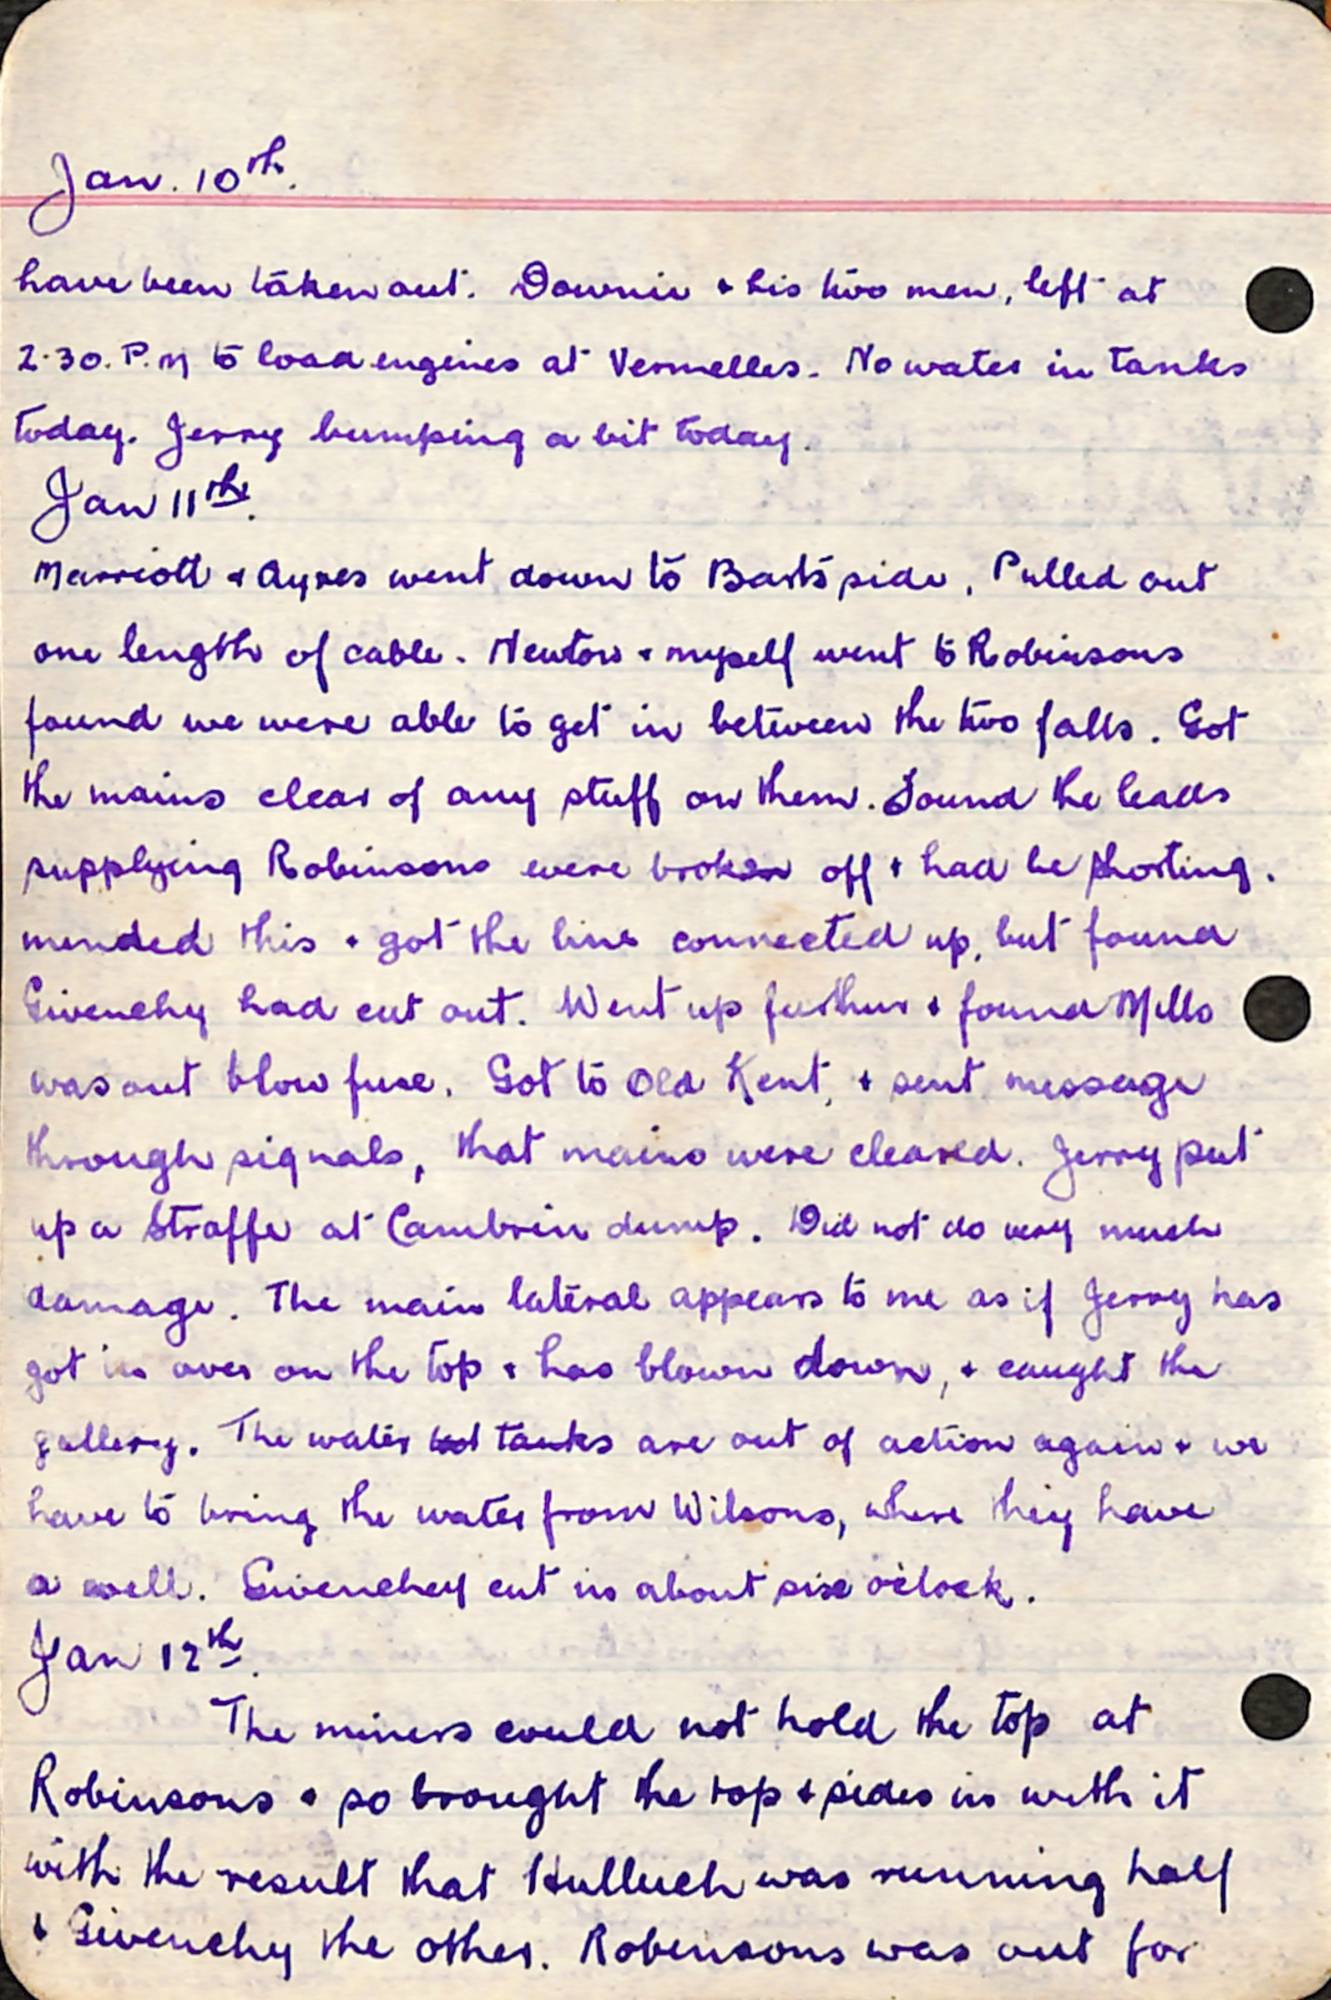 Jan. 10th.
have been taken out. Downie & his two men, left at
2.30. P.M to load engines at Vermelles. No water in tanks
today. Jerry bumping a bit today.
Jan 11th.
Marriott & Ayres went down to Barts side. Pulled out
one length of cable. Newton & myself went to Robinsons
found we were able to get in between the two falls. Got
the mains clear of any stuff on them. Found the leads
supplying Robinsons were broken off & had be shorting.
mended this & got the line connected up, but found
Givenchy had cut out. Went up further & found Mills
was out blow fuse. Got to Old Kent, & sent message
through signals, that mains were cleared. Jerry put
up a Straffe at Cambrin dump. Did not do very much
damage. The main lateral appears to me as if Jerry has
got in over on the top & has blown down, & caught the
gallery. The water tanks are out of action again & we
have to bring the water from Wilsons, where they have
a well. Givenchey cut in about six oclock.
Jan 12th.
The miners could not hold the top at
Robinsons & so brought the top & sides in with it
with the result that Hulluch was running half
& Givenchy the other. Robinsons was out for